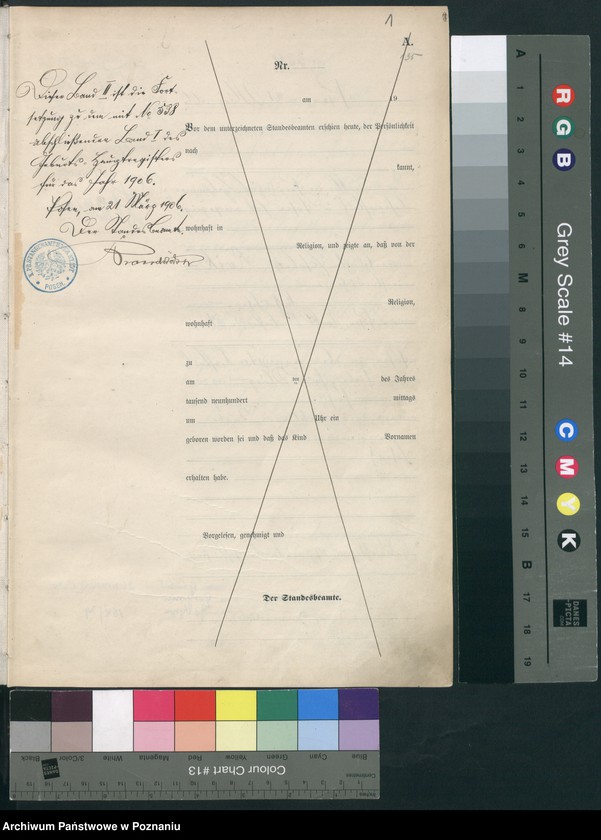 1
A.
Nr.
Dieser Band II ist die Fort-
setzung zu dem mit No 538
abschließenden Band I des
Geburts-Hauptregisters
für das Jahr 1906.
Posen, am 21 März 1906.
Der Standesbeamte.
POSEN.
am 19
Vor dem unterzeichneten Standesbeamten erschien heute, der Persönlichkeit
nach
kannt,
wohnhaft in
Religion, und zeigte an, daß von der
Religion,
wohnhaft
zu
am ten des Jahres
tausend neunhundert mittags
um Uhr ein
geboren worden sei und daß das Kind Vornamen
erhalten habe.
Vorgelesen, genehmigt und
Der Standesbeamte.
A 1 2 3 4 5 6 M 8 9 10 11 12 13 14 15 B 17 18 19
R G B
Grey Scale #14
C M Y K
DANES
-PICTA
.COM
Black 3/Color White Magenta Red Yellow Green Cyan Blue
Colour Chart #13
Centimetres
Inches
Archiwum Państwowe w Poznaniu